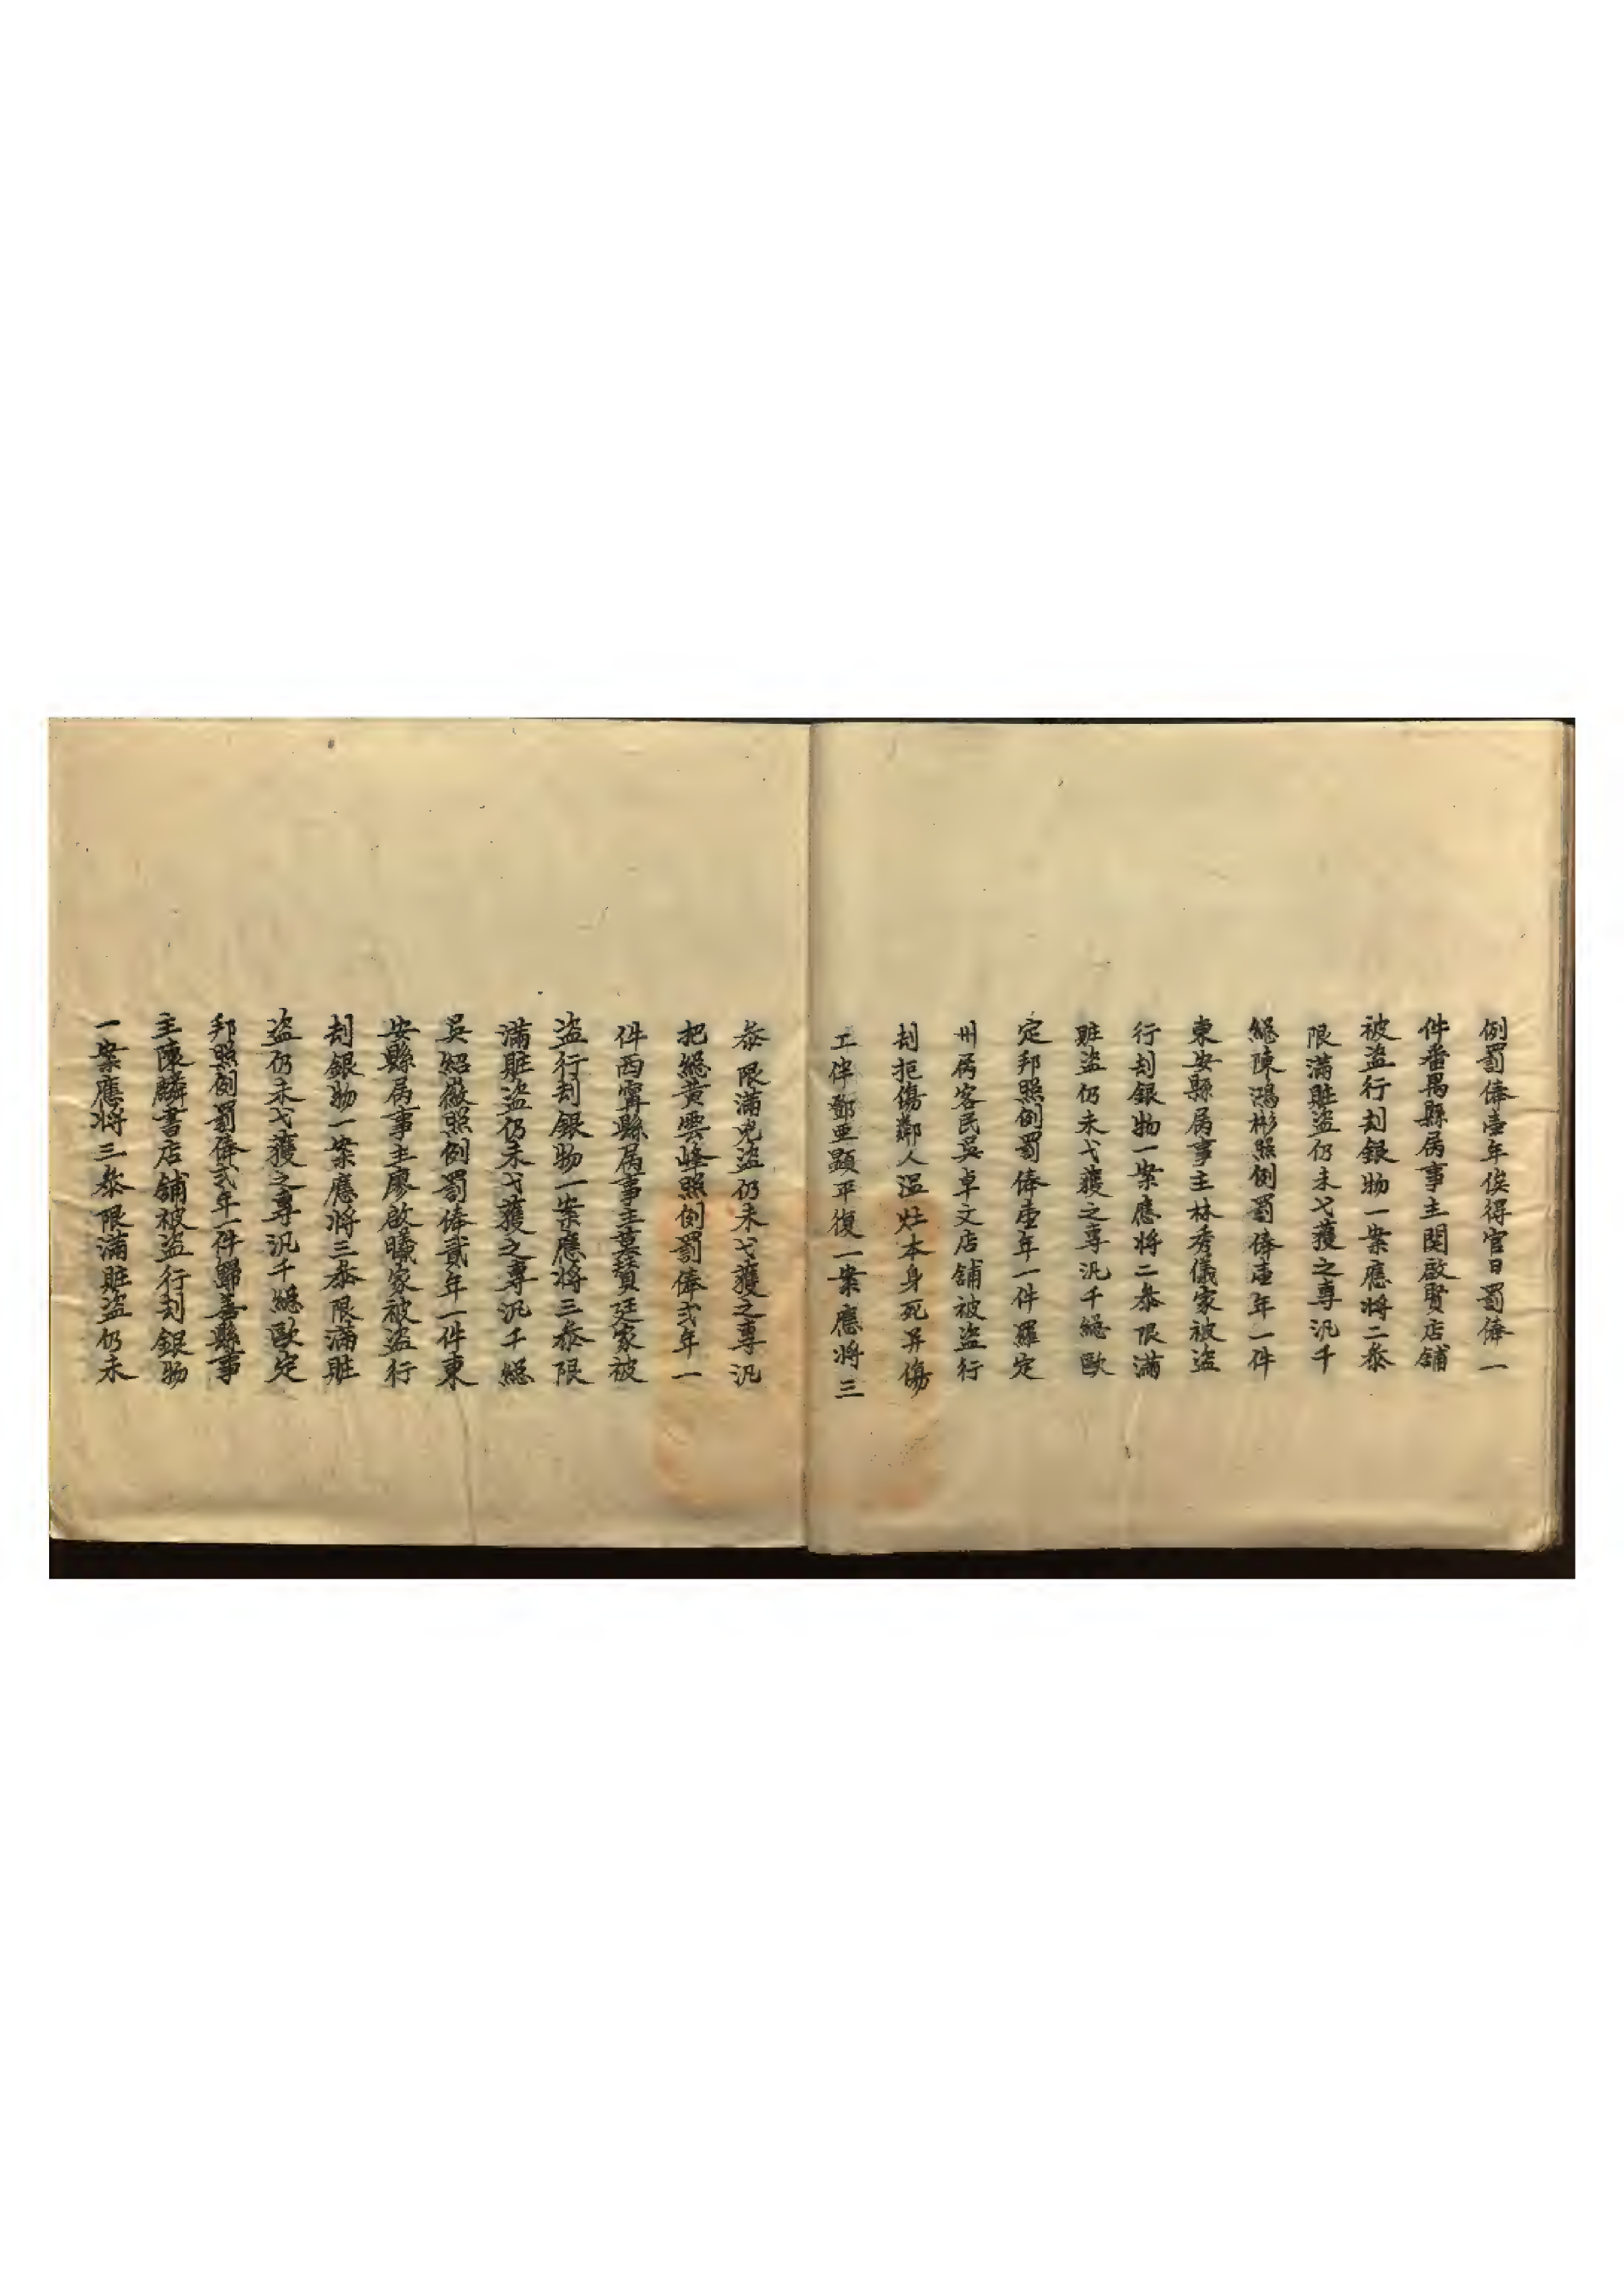 例罰俸壹年俟得官日罰俸一
件番禺縣屬事主関啟賢店舖
被盜行刦銀物一案應將二叅
限滿賍盜仍未弋獲之專汛千
總陳鴻彬照例罰俸壹年一件
東安縣屬事主林秀儀家被盜
行刦銀物一案應將二叅限滿
賍盜仍未弋獲之專汛千總歐
定邦照例罰俸壹年一件羅定
州屬客民吳卓文店舖被盜行
刦拒傷鄰人溫灶本身死并傷
工伴鄧亞顯平復一案應將三
叅限滿兇盜仍未弋獲之專汛
把總黃雲峰照例罰俸弍年一
件西寗縣屬事主莫贊廷家被
盜行刦銀物一案應將三叅限
滿賍盜仍未弋獲之專汛千總
吳紹薇照例罰俸貳年一件東
安縣屬事主廖啟曦家被盜行
刦銀物一案應將三叅限滿賍
盜仍未弋獲之專汛千總歐定
邦照例罰俸弍年一件歸善縣事
主陳麟書店舖被盜行刦銀物
一案應將三叅限滿賍盜仍未